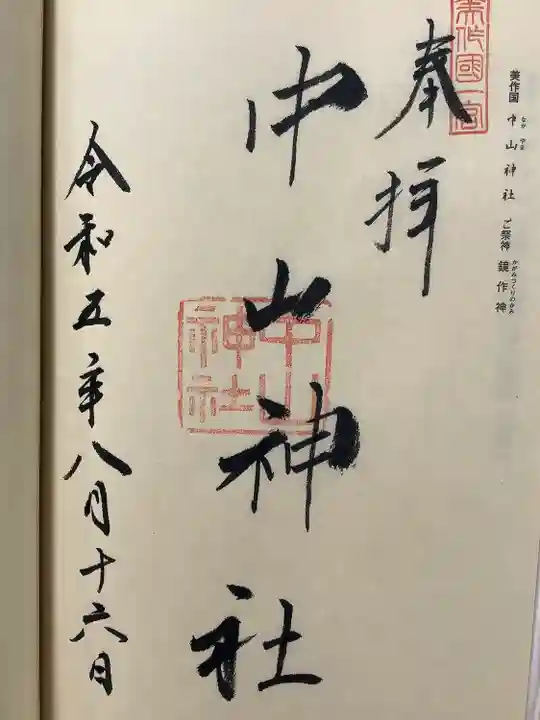 美作国 中山神社 ご祭神 鏡作神
なか やま
かがみつくりのかみ
美作國一宮
奉拝
中山神社
中山神社
令和五年八月十六日